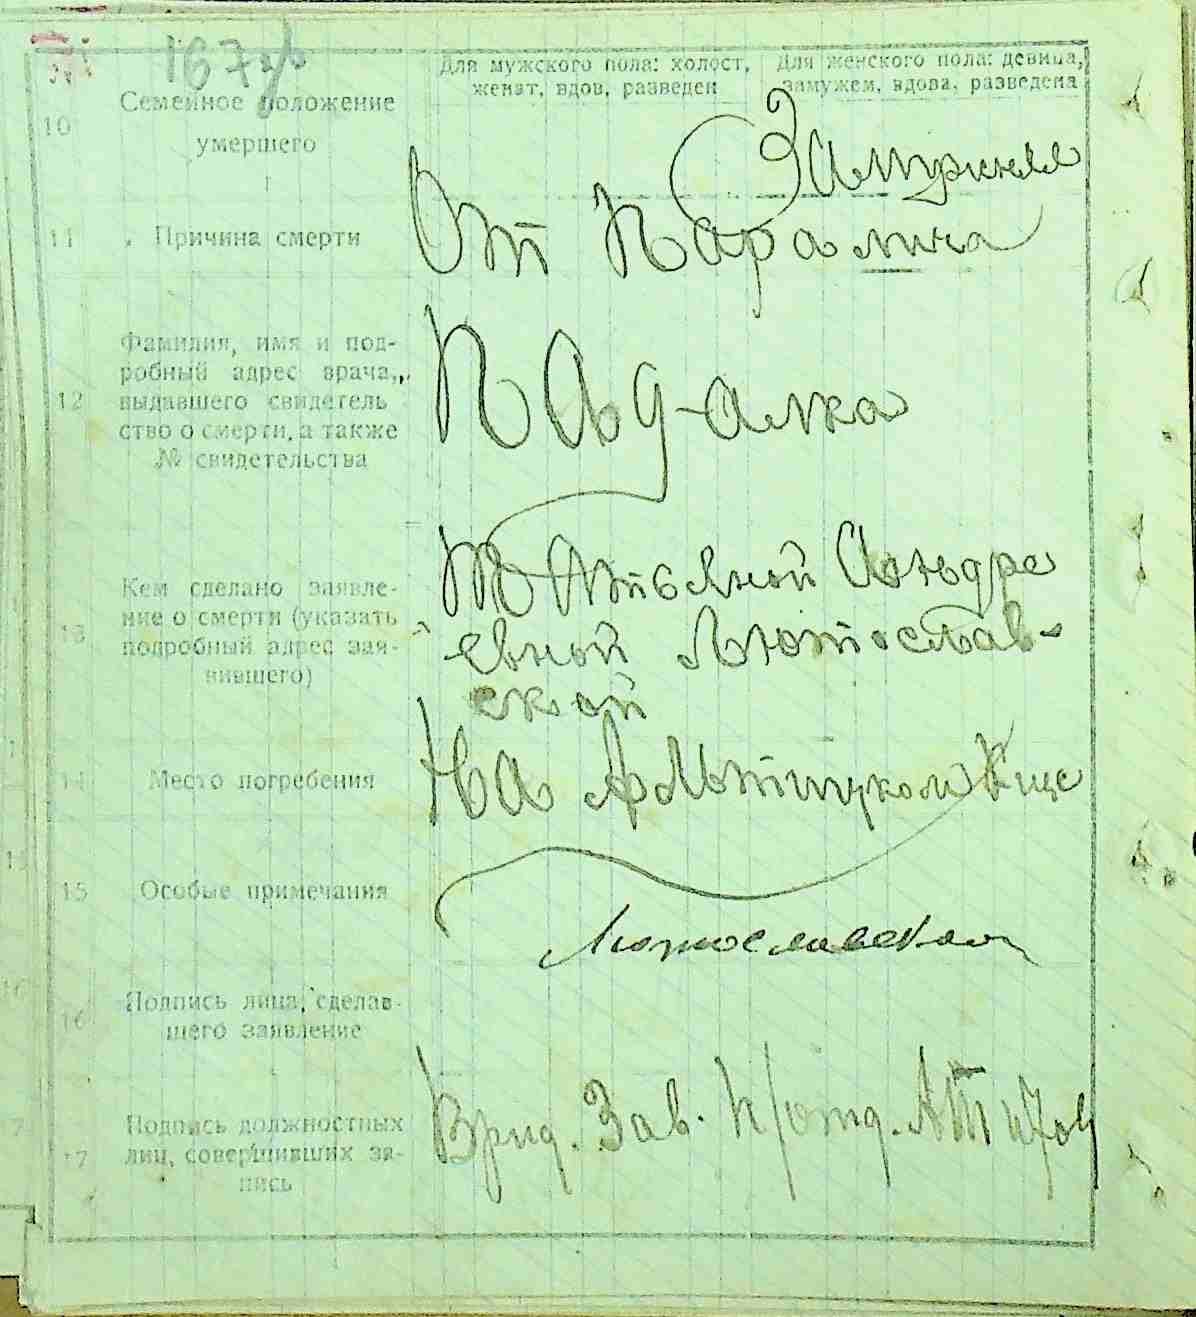 167
Для мужского пола: холост, женат, вдов, разведен
Для женского пола: девица, замужем, вдова, разведена
10
Семейное положение умершего
Замужняя
11
Причина смерти
От Паралича
12
Фамилия, имя и под-
робный адрес врача,
выдавшего свидетель
ство о смерти, а также
№ свидетельства
13
Кем сделано заявле-
ние о смерти (указать
подробный адрес зая-
вившего)
Татьяной Андре
евной Лютославс-
ской
14
Место погребения
На
15
Особые примечания
Лютославская
16
Подпись лица, сделав-
шего заявление
17
Подпись должностных
лиц, совершивших за-
пись
Врид. Зав. П/отд.